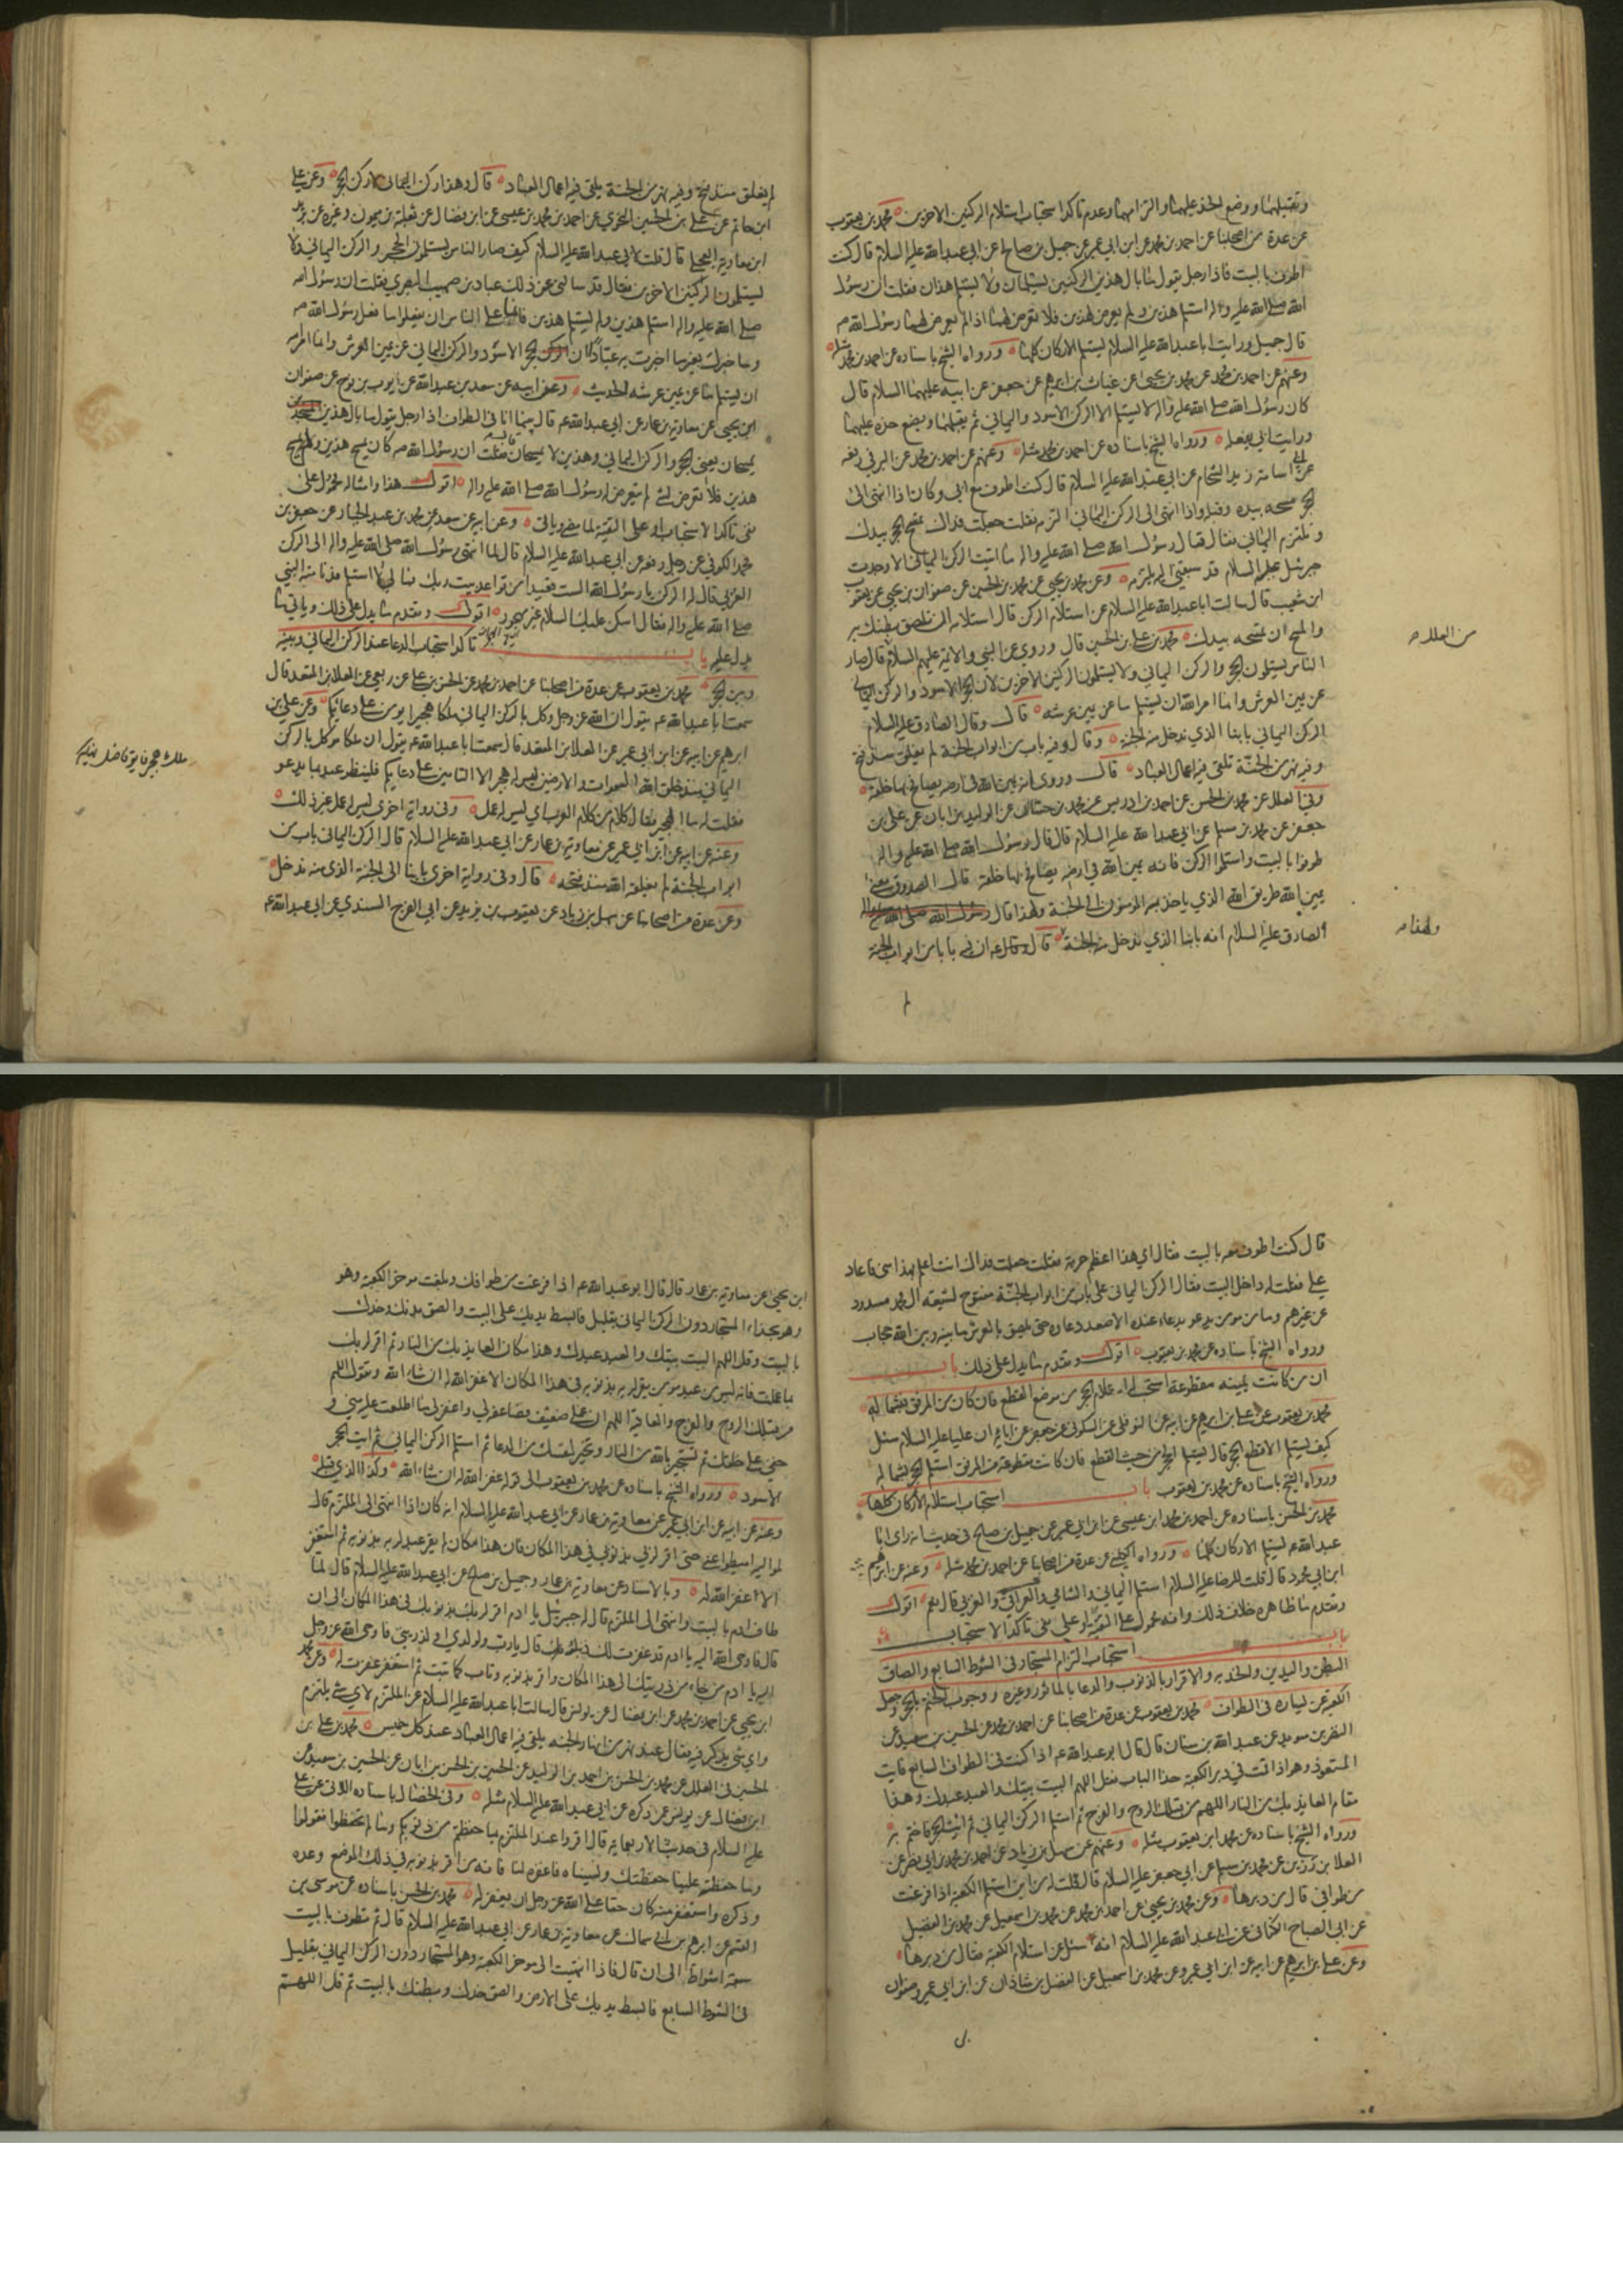 وتقبيلهما ووضع الخد عليهما والتزامهما وعدم تاكد استحباب استلام الركنين الاخرين محمد بن يعقوب
عن عدة من اصحابنا عن احمد بن محمد عن ابن ابي عمير عن جميل بن صالح عن ابي عبد الله عليه السلام قال كنت
اطوف بالبيت فاذا رجل يقول ما بال هذين الركنين يستلمان ولا يستلم هذان فقلت ان رسول
الله صلى الله عليه واله استلم هذين ولم يعرض لهذين فلا تعرض لهما اذا لم يعرض لهما رسول الله صه
قال جميل ورايت ابا عبد الله عليه السلام يستلم الاركان كلها ورواه الشيخ باسناده عن احمد بن محمد مثله
وعنهم عن احمد بن محمد عن محمد بن يحيى عن غياث بن ابرهيم عن جعفر عن ابيه عليهما السلام قال
كان رسول الله صلى الله عليه واله لا يستلم الا الركن الاسود واليماني ثم يقبلهما ويضع خده عليهما
ورايت ابي يفعله ورواه الشيخ باسناده عن احمد بن محمد مثله وعنهم عن احمد بن محمد عن البرقي رفعه
عن ابي اسامة زيد الشحام عن ابي عبد الله عليه السلام قال كنت اطوف مع ابي وكان اذا انتهى الى
الحجر مسحه بيده وقبله واذا انتهى الى الركن اليماني التزمه فقلت جعلت فداك تمسح الحجر بيدك
وتلتزم اليماني فقال قال رسول الله صلى الله عليه واله ما اتيت الركن اليماني الا وجدت
جبرئيل عليه السلام قد سبقني اليه يلتزمه وعن محمد بن يحيى عن محمد بن الحسين عن صفوان بن يحيى عن يعقوب
ابن شعيب قال سالت ابا عبد الله عليه السلام عن استلام الركن قال استلامه ان تلصق بطنك به
والمسح ان تمسحه بيدك محمد بن علي بن الحسين قال وروي عن النبي والائمة عليهم السلام قال صار
الناس يستلمون الحجر والركن اليماني ولا يستلمون الركنين الاخرين لان الحجر الاسود والركن اليماني
عن يمين العرش وانما امر الله ان يستلم ما عن يمين عرشه قال وقال الصادق عليه السلام
الركن اليماني بابنا الذي ندخل منه الجنة وقال وفيه باب من ابواب الجنة لم يغلق منذ فتح
وفيه نهر من الجنة تلقى فيه اعمال العباد قال وروي انه يمين الله في ارضه يصافح بها خلقه
وفي العلل عن محمد بن الحسن عن احمد بن ادريس عن محمد بن حسان عن الوليد بن ابان عن علي بن
جعفر عن محمد بن مسلم عن ابي عبد الله عليه السلام قال قال رسول الله صلى الله عليه واله
طوفوا بالبيت واستلموا الركن فانه يمين الله في ارضه يصافح بها خلقه قال الصدوق معنى
يمين الله طريق الله الذي ياخذ به المومنون الى الجنة ولهذا قال رسول الله صلى الله عليه واله
الصادق عليه السلام انه بابنا الذي ندخل منه الجنة قال وقال ع ان فيه بابا من ابواب الجنة
من العلل صه
ولهذا صه
لم يغلق منذ فتح وفيه نهر من الجنة يلقى فيه اعمال العباد قال وهذا ركن اليماني لا ركن الحجر وعن علي
ابن حاتم عن علي بن الحسين النحوي عن احمد بن محمد بن عيسى عن ابن فضال عن ثعلبة بن ميمون وغيره عن بريد
ابن معاوية العجلي قال قلت لابي عبد الله عليه السلام كيف صار الناس يستلمون الحجر والركن اليماني ولا
يستلمون الركنين الاخرين فقال قد سالني عن ذلك عباد بن صهيب البصري فقلت ان رسول الله
صلى الله عليه واله استلم هذين ولم يستلم هذين فانما على الناس ان يفعلوا ما فعل رسول الله صه
وساخبرك بغير ما اخبرت به عبادا ان الحجر الاسود والركن اليماني عن يمين العرش وانما امر الله
ان يستلم ما عن يمين عرشه الحديث وعن ابيه عن سعد بن عبد الله عن ايوب بن نوح عن صفوان
ابن يحيى عن معاوية بن عمار عن ابي عبد الله عه قال بينما انا في الطواف اذا رجل يقول ما بال هذين
يمسحان يعني الحجر والركن اليماني وهذين لا يمسحان قال فقلت ان رسول الله صه كان يمسح هذين ولم يمسح
هذين فلا تعرض لشيء لم يتعرض له رسول الله صلى الله عليه واله اقول هذا وامثاله محمول على
نفي تاكد الاستحباب او على التقية لما مضى وياتي وعن ابيه عن سعد عن محمد بن عبد الجبار عن جعفر بن
محمد الكوفي عن رجل رفعه عن ابي عبد الله عليه السلام قال لما انتهى رسول الله صلى الله عليه واله الى الركن
الغربي قال له الركن يا رسول الله الست قعيدا من قواعد بيت ربك فما لي لا استلم فدنا منه النبي
صلى الله عليه واله فقال اسكن عليك السلام غير مهجور اقول وتقدم ما يدل على ذلك وياتي ما
يدل عليه باب تاكد استحباب الدعاء عند الركن اليماني وبينه
وبين الحجر محمد بن يعقوب عن عدة من اصحابنا عن احمد بن محمد عن الحسن بن علي عن ربعي عن العلا بن المقعد قال
سمعت ابا عبد الله عه يقول ان الله عز وجل وكل بالركن اليماني ملكا هجيرا يومن على دعائكم وعن علي بن
ابرهيم عن ابيه عن ابن ابي عمير عن العلا بن المقعد قال سمعت ابا عبد الله عه يقول ان ملكا موكل بالركن
اليماني منذ خلق الله السموات والارضين ليس له هجير الا التامين على دعائكم فلينظر عبد بما يدعو
فقلت له ما الهجير فقال كلام من كلام العرب اي ليس له عمل وفي رواية اخرى ليس له عمل غير ذلك
وعنه عن ابيه عن ابن ابي عمير عن معاوية بن عمار عن ابي عبد الله عليه السلام قال الركن اليماني باب من
ابواب الجنة لم يغلقه الله منذ فتحه قال وفي رواية اخرى بابنا الى الجنة الذي منه ندخل
وعن عدة من اصحابنا عن سهل بن زياد عن يعقوب بن يزيد عن ابي الفرج السندي عن ابي عبد الله عه
قال كنت اطوف معه بالبيت فقال اي هذا اعظم حرمة فقلت جعلت فداك انت اعلم بهذا مني فاعاد
علي فقلت له داخل البيت فقال الركن اليماني على باب من ابواب الجنة مفتوح لشيعة ال محمد مسدود
عن غيرهم وما من مومن يدعو بدعاء عنده الا صعد دعاؤه حتى يلصق بالعرش ما بينه وبين الله حجاب
ورواه الشيخ باسناده عن محمد بن يعقوب اقول وتقدم ما يدل على ذلك باب
ان من كانت يمينه مقطوعة استحب له استلام الحجر من موضع القطع فان كان من المرفق فبشماله
محمد بن يعقوب عن علي بن ابرهيم عن ابيه عن النوفلي عن السكوني عن جعفر عن ابائه ان عليا عليه السلام سئل
كيف يستلم الاقطع الحجر قال يستلم الحجر من حيث القطع فان كانت مقطوعة من المرفق استلم الحجر بشماله
ورواه الشيخ باسناده عن محمد بن يعقوب باب استحباب استلام الاركان كلها
محمد بن الحسن باسناده عن احمد بن محمد ابن عيسى عن ابن ابي عمير عن جميل بن صالح في حديث انه راى ابا
عبد الله عه يستلم الاركان كلها ورواه الكليني عن عدة من اصحابنا عن احمد بن محمد مثله وعنه عن ابرهيم
ابن ابي محمود قال قلت للرضا عليه السلام استلم اليماني والشامي والعراقي والغربي قال نعم اقول
وتقدم ما ظاهره خلاف ذلك وانه محمول على التقية او على نفي تاكد الاستحباب
باب استحباب التزام المستجار في الشوط السابع والصاق
البطن واليدين والخد به والاقرار بالذنوب والدعاء بالماثور وغيره ووجوب الختم بالحجر وجعل
الكعبة عن يساره في الطواف محمد بن يعقوب عن عدة من اصحابنا عن احمد بن محمد عن الحسين بن سعيد عن
النضر بن سويد عن عبد الله بن سنان قال قال ابو عبد الله عه اذا كنت في الطواف السابع فايت
المتعوذ وهو اذا قمت في دبر الكعبة حذا الباب فقل اللهم البيت بيتك والعبد عبدك وهذا
مقام العايذ بك من النار اللهم من قبلك الروح والفرج ثم استلم الركن اليماني ثم ايت الحجر فاختم به
ورواه الشيخ باسناده عن محمد ابن يعقوب مثله وعنهم عن سهل بن زياد عن احمد بن محمد بن ابي نصر عن
العلا بن رزين عن محمد بن مسلم عن ابي جعفر عليه السلام قال قلت له من اين استلم الكعبة اذا فرغت
من طوافي قال من دبرها وعن محمد بن يحيى عن احمد بن محمد عن محمد بن اسمعيل عن محمد بن الفضيل
عن ابي الصباح الكناني عن ابي عبد الله عليه السلام انه سئل عن استلام الكعبة فقال من دبرها
وعن علي بن ابرهيم عن ابيه عن ابن ابي عمير وعن محمد بن اسمعيل عن الفضل بن شاذان عن ابن ابي عمير وصفوان
ابن يحيى عن معاوية بن عمار قال قال ابو عبد الله عه اذا فرغت من طوافك وبلغت موخر الكعبة وهو
وهو بحذاء المستجار دون الركن اليماني بقليل فابسط يديك على البيت والصق بدنك وخدك
بالبيت وقل اللهم البيت بيتك والعبد عبدك وهذا مكان العايذ بك من النار ثم اقر لربك
بما عملت فانه ليس من عبد مومن يقر لربه بذنوبه في هذا المكان الا غفر الله له ان شاء الله وتقول اللهم
من قبلك الروح والفرج والعافية اللهم ان عملي ضعيف فضاعفه لي واغفر لي ما اطلعت عليه مني و
خفي على خلقك ثم تستجير بالله من النار وتخير لنفسك من الدعاء ثم استلم الركن اليماني ثم ايت الحجر
الاسود ورواه الشيخ باسناده عن محمد بن يعقوب الى قوله غفر الله له ان شاء الله وكذا الذي قبله
وعنه عن ابيه عن ابن ابي عمير عن معاوية بن عمار عن ابي عبد الله عليه السلام انه كان اذا انتهى الى الملتزم قال
لمواليه اميطوا عني حتى اقر لربي بذنوبي في هذا المكان فان هذا مكان لم يقر عبد لربه بذنوبه ثم استغفر
الا غفر الله له وبالاسناد عن معاوية بن عمار وجميل بن صالح عن ابي عبد الله عليه السلام قال لما
طاف ادم بالبيت وانتهى الى الملتزم قال له جبرئيل يا ادم اقر لربك بذنوبك في هذا المكان الى ان
قال فاوحى الله اليه يا ادم قد غفرت لك ذنبك قال يا رب ولولدي او لذريتي فاوحى الله عز وجل
اليه يا ادم من جاء من ذريتك الى هذا المكان واقر بذنوبه وتاب كما تبت ثم استغفر غفرت له وعن محمد
ابن يحيى عن احمد بن محمد عن ابن فضال عن يونس قال سالت ابا عبد الله عليه السلام عن الملتزم لاي شيء يلتزم
واي شيء يذكر فيه فقال عنده نهر من انهار الجنة يلقى فيه اعمال العباد عند كل خميس محمد بن علي بن
الحسين في العلل عن محمد بن الحسن بن احمد بن الوليد عن الحسين بن الحسن بن ابان عن الحسين بن سعيد عن
ابن فضال عن يونس عن ذكره عن ابي عبد الله عليه السلام مثله وفي الخصال باسناده الاتي عن علي
عليه السلام في حديث الاربعمائة قال اقروا عند الملتزم بما حفظتم من ذنوبكم وما لم تحفظوا فقولوا
وما حفظته علينا حفظتك ونسيناه فاغفره لنا فانه من اقر بذنوبه في ذلك الموضع وعده
وذكره واستغفر منه كان حقا على الله عز وجل ان يغفر له محمد بن الحسن باسناده عن موسى بن
القسم عن ابرهيم بن ابي سماك عن معاوية بن عمار عن ابي عبد الله عليه السلام قال ثم تطوف بالبيت
سبعة اشواط الى ان قال فاذا انتهيت الى موخر الكعبة وهو المستجار دون الركن اليماني بقليل
في الشوط السابع فابسط يديك على الارض والصق خدك وبطنك بالبيت ثم قل اللهم